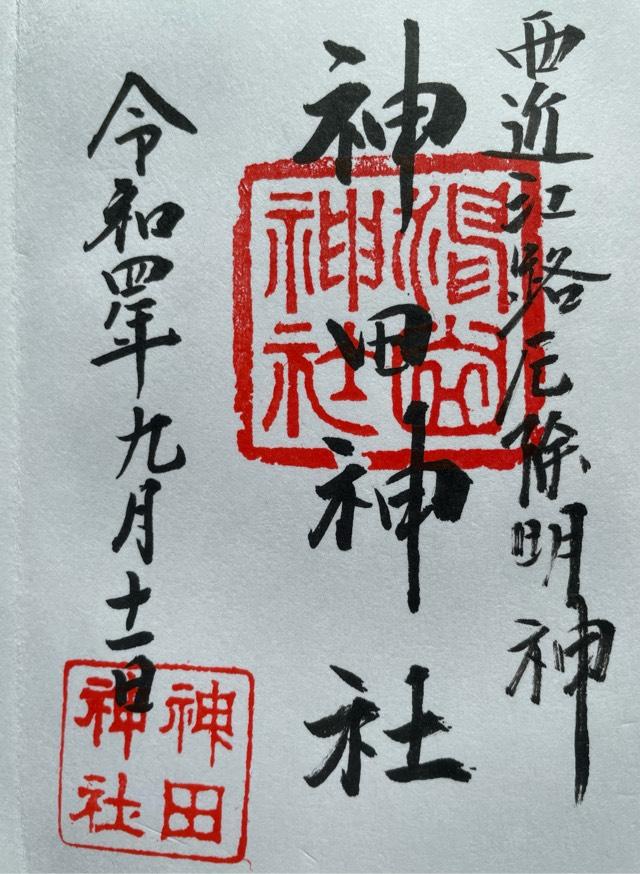 西近江路厄除明神
神田神社
神社
令和四年九月十一日
神田
神社